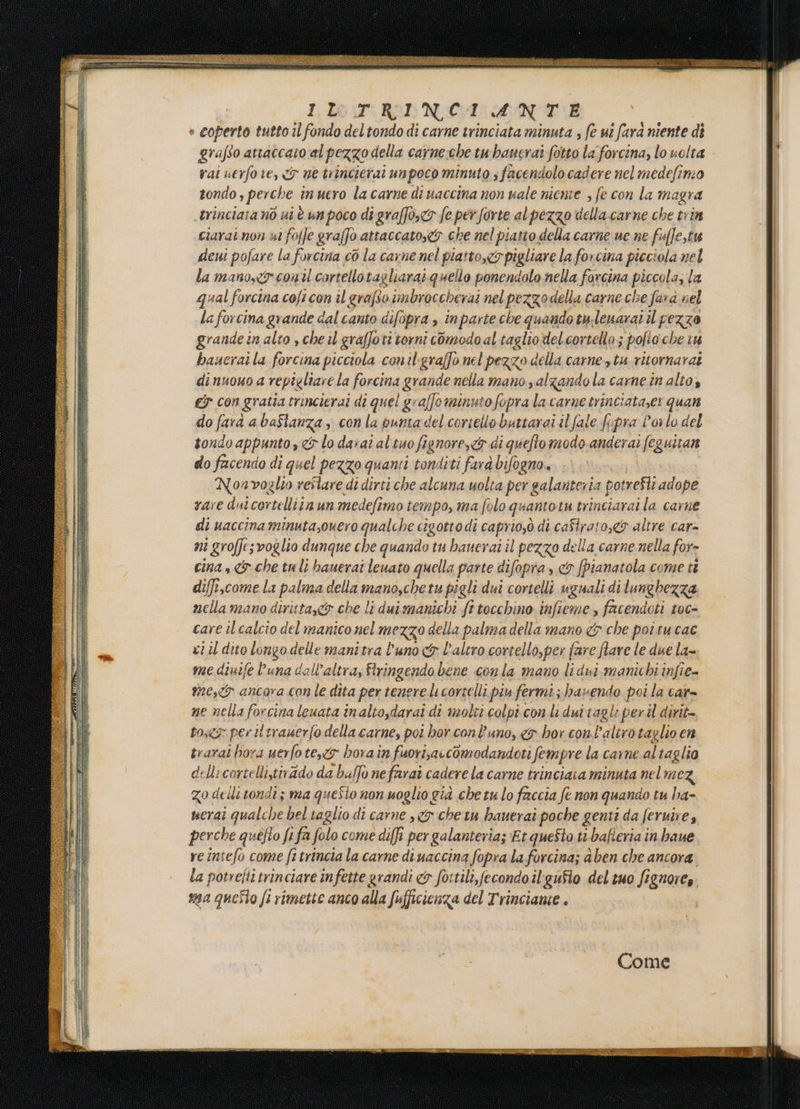 IL TRINCIANTE
coperto tutto il fondo del tondo di carne trinciata minuta, se ui sarà niente di
grasso attaccato al pezzo della carne che tu hauerai sotto la forcina, lo uolta
rai uerso te, & ne trincierai un poco minuto, facendolo cadere nel medesimo
tondo, perche in uero la carne di uaccina non uale niente, se con la magra
trinciata nō ui è un poco di grasso, & se per sorte al pezzo della carne che trin
ciarai non ui fosse grasso attaccato, & che nel piatto della carne ue ne fusse, tu
deui posare la forcina cō la carne nel piatto, & pigliare la forcina picciola nel
la mano, & con il cortello tagliarai quello ponendolo nella forcina piccola, la
qual forcina cosi con il grasso imbroccherai nel pezzo della carne che sarà nel
la forcina grande dal canto disopra, in parte che quando tu leuarai il pezzo
grande in alto, che il grasso ti torni cōmodo al taglio del cortello; posto che tu
hauerai la forcina picciola con il grasso nel pezzo della carne, tu ritornarai
di nuouo a repigliare la forcina grande nella mano, alzando la carne in alto,
& con gratia trincierai di quel grasso minuto sopra la carne trinciata, et quan
do sarà a bastanza, con la punta del cortello buttarai il sale sopra l'orlo del
tondo appunto, & lo darai al tuo signore, & di questo modo anderai seguitan
do facendo di quel pezzo quanti tonditi sarà bisogno.
Non voglio restare di dirti che alcuna uolta per galanteria potresti adope
rare dui cortelli in un medesimo tempo, ma solo quanto tu trinciarai la carne
di uaccina minuta, ouero qualche cigotto di caprio, ò di castrato, & altre car-
ni grosse; voglio dunque che quando tu hauerai il pezzo della carne nella for-
cina, & che tu li hauerai leuato quella parte disopra, & spianatola come ti
dissi, come la palma della mano, che tu pigli dui cortelli uguali di lunghezza
nella mano diritta, & che li dui manichi si tocchino insieme, facendoti toc-
care il calcio del manico nel mezzo della palma della mano & che poi tu cac
ci il dito longo delle mani tra l'uno & l'altro cortello, per fare stare le due la-
me diuise l'una dall'altra, stringendo bene con la mano li dui manichi insie-
me, & ancora con le dita per tenere li cortelli piu fermi; hauendo poi la car-
ne nella forcina leuata in alto, darai di molti colpi con li dui tagli per il dirit-
to, & per il trauerso della carne, poi hor con l'uno, & hor con l'altro taglio en
trarai hora uerso te, & hora in fuori, accōmodandoti sempre la carne al taglio
delli cortelli, tirādo da basso ne farai cadere la carne trinciata minuta nel mez
zo delli tondi; ma questo non uoglio già che tu lo faccia se non quando tu ha-
uerai qualche bel taglio di carne, & che tu hauerai poche genti da seruire,
perche questo si fa solo come dissi per galanteria; Et questo ti basteria in haue
re inteso come si trincia la carne di uaccina sopra la forcina; à ben che ancora
la potresti trinciare in fette grandi & sottili, secondo il gusto del tuo signore,
ma questo si rimette anco alla sufficienza del Trinciante.
Come